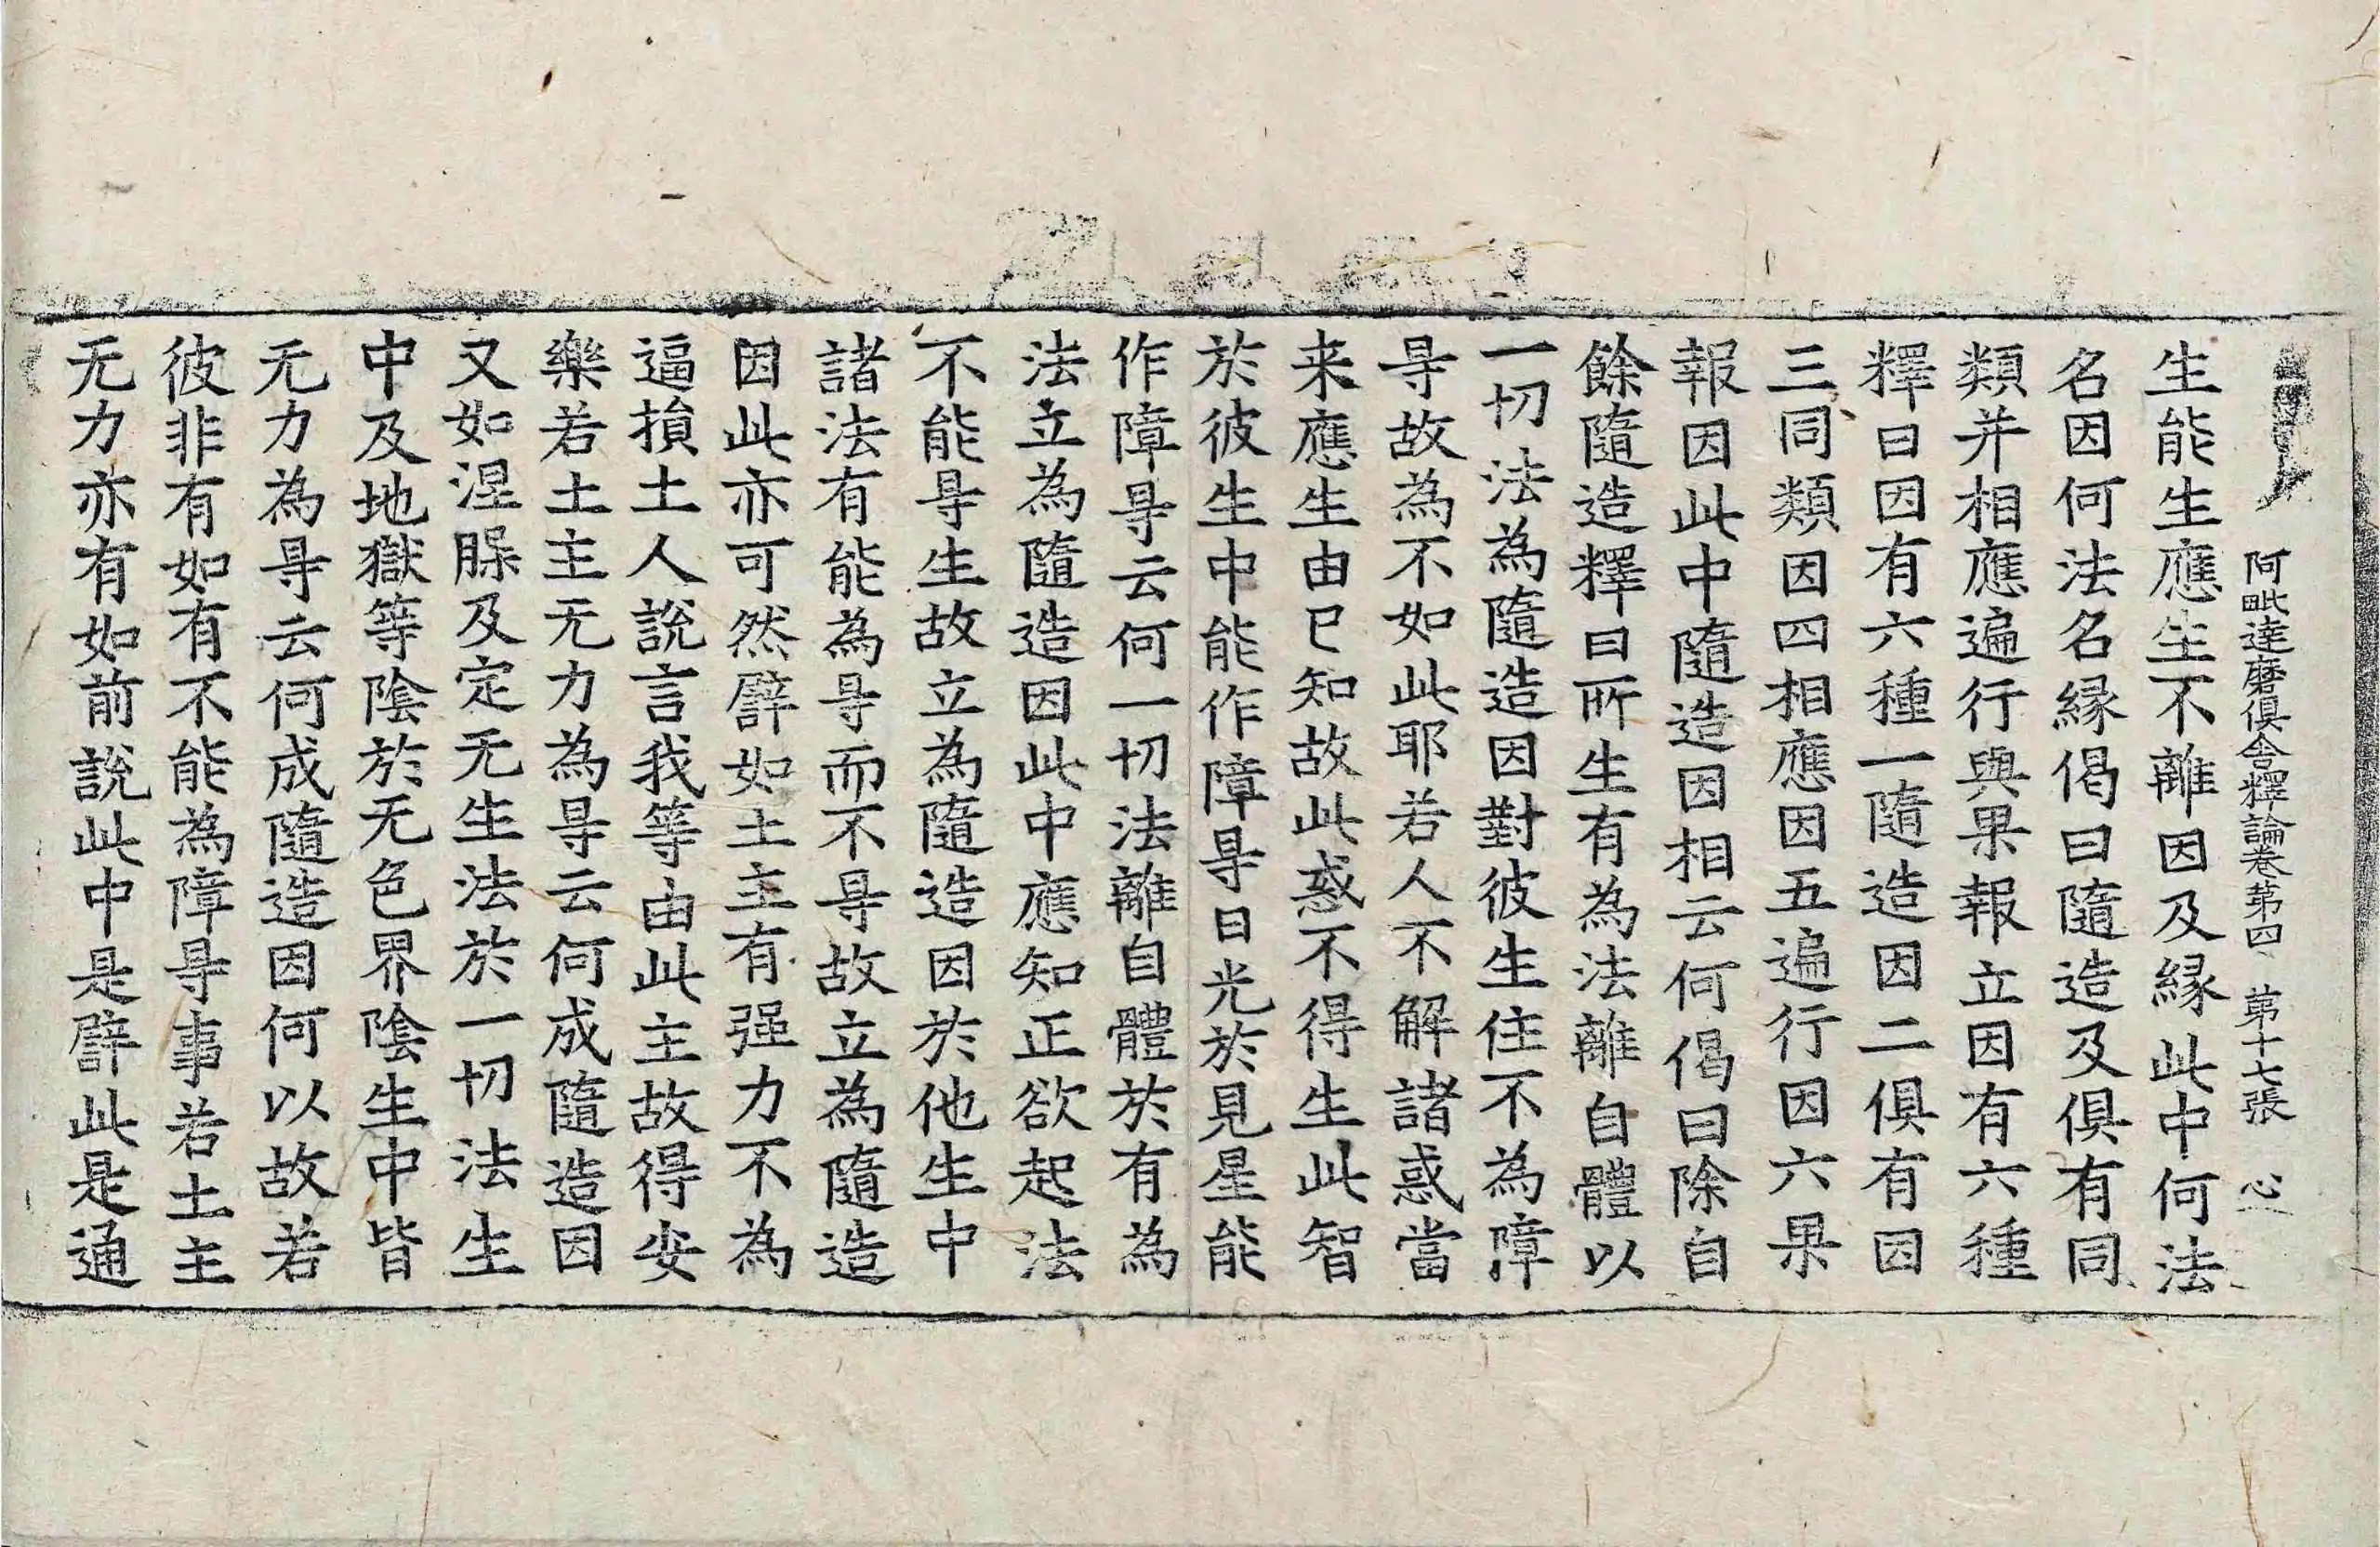 阿毗達磨俱舍釋論卷第四 第十七張 心
生能生生應生不離因及縁此中何法
名因何法名縁偈曰隨造及俱有同
類并相應遍行與果報立因有六種
釋曰因有六種一隨造因二俱有因
三同類因四相應因五遍行因六果
報因此中隨造因相云何偈曰除自
餘隨造釋曰所生有為法離自體以
一切法為隨造因對彼生住不為障
㝵故為不如此耶若人不解諸惑當
来應生由已知故此惑不得生此智
於彼生中能作障㝵日光於見星能
作障㝵云何一切法離自體於有為
法立為隨造因此中應知正欲起法
不能㝵生故立為隨造因於他生中
諸法有能為㝵而不㝵故立為隨造
因此亦可然譬如土主有强力不為
逼損土人說言我等由此主故得安
樂若土主无力為㝵云何成隨造因
又如涅槃及定无生法於一切法生
中及地獄等陰於无色界陰生中皆
无力為㝵云何成隨造因何以故若
彼非有如有不能為障㝵事若土主
无力亦有如前說此中是譬此是通